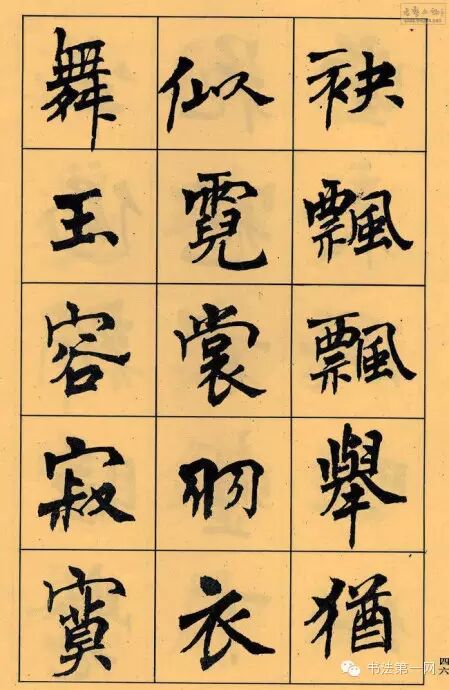 袂飄飄舉猶
似霓裳羽衣
舞玉容寂寞
四六
书法第一网